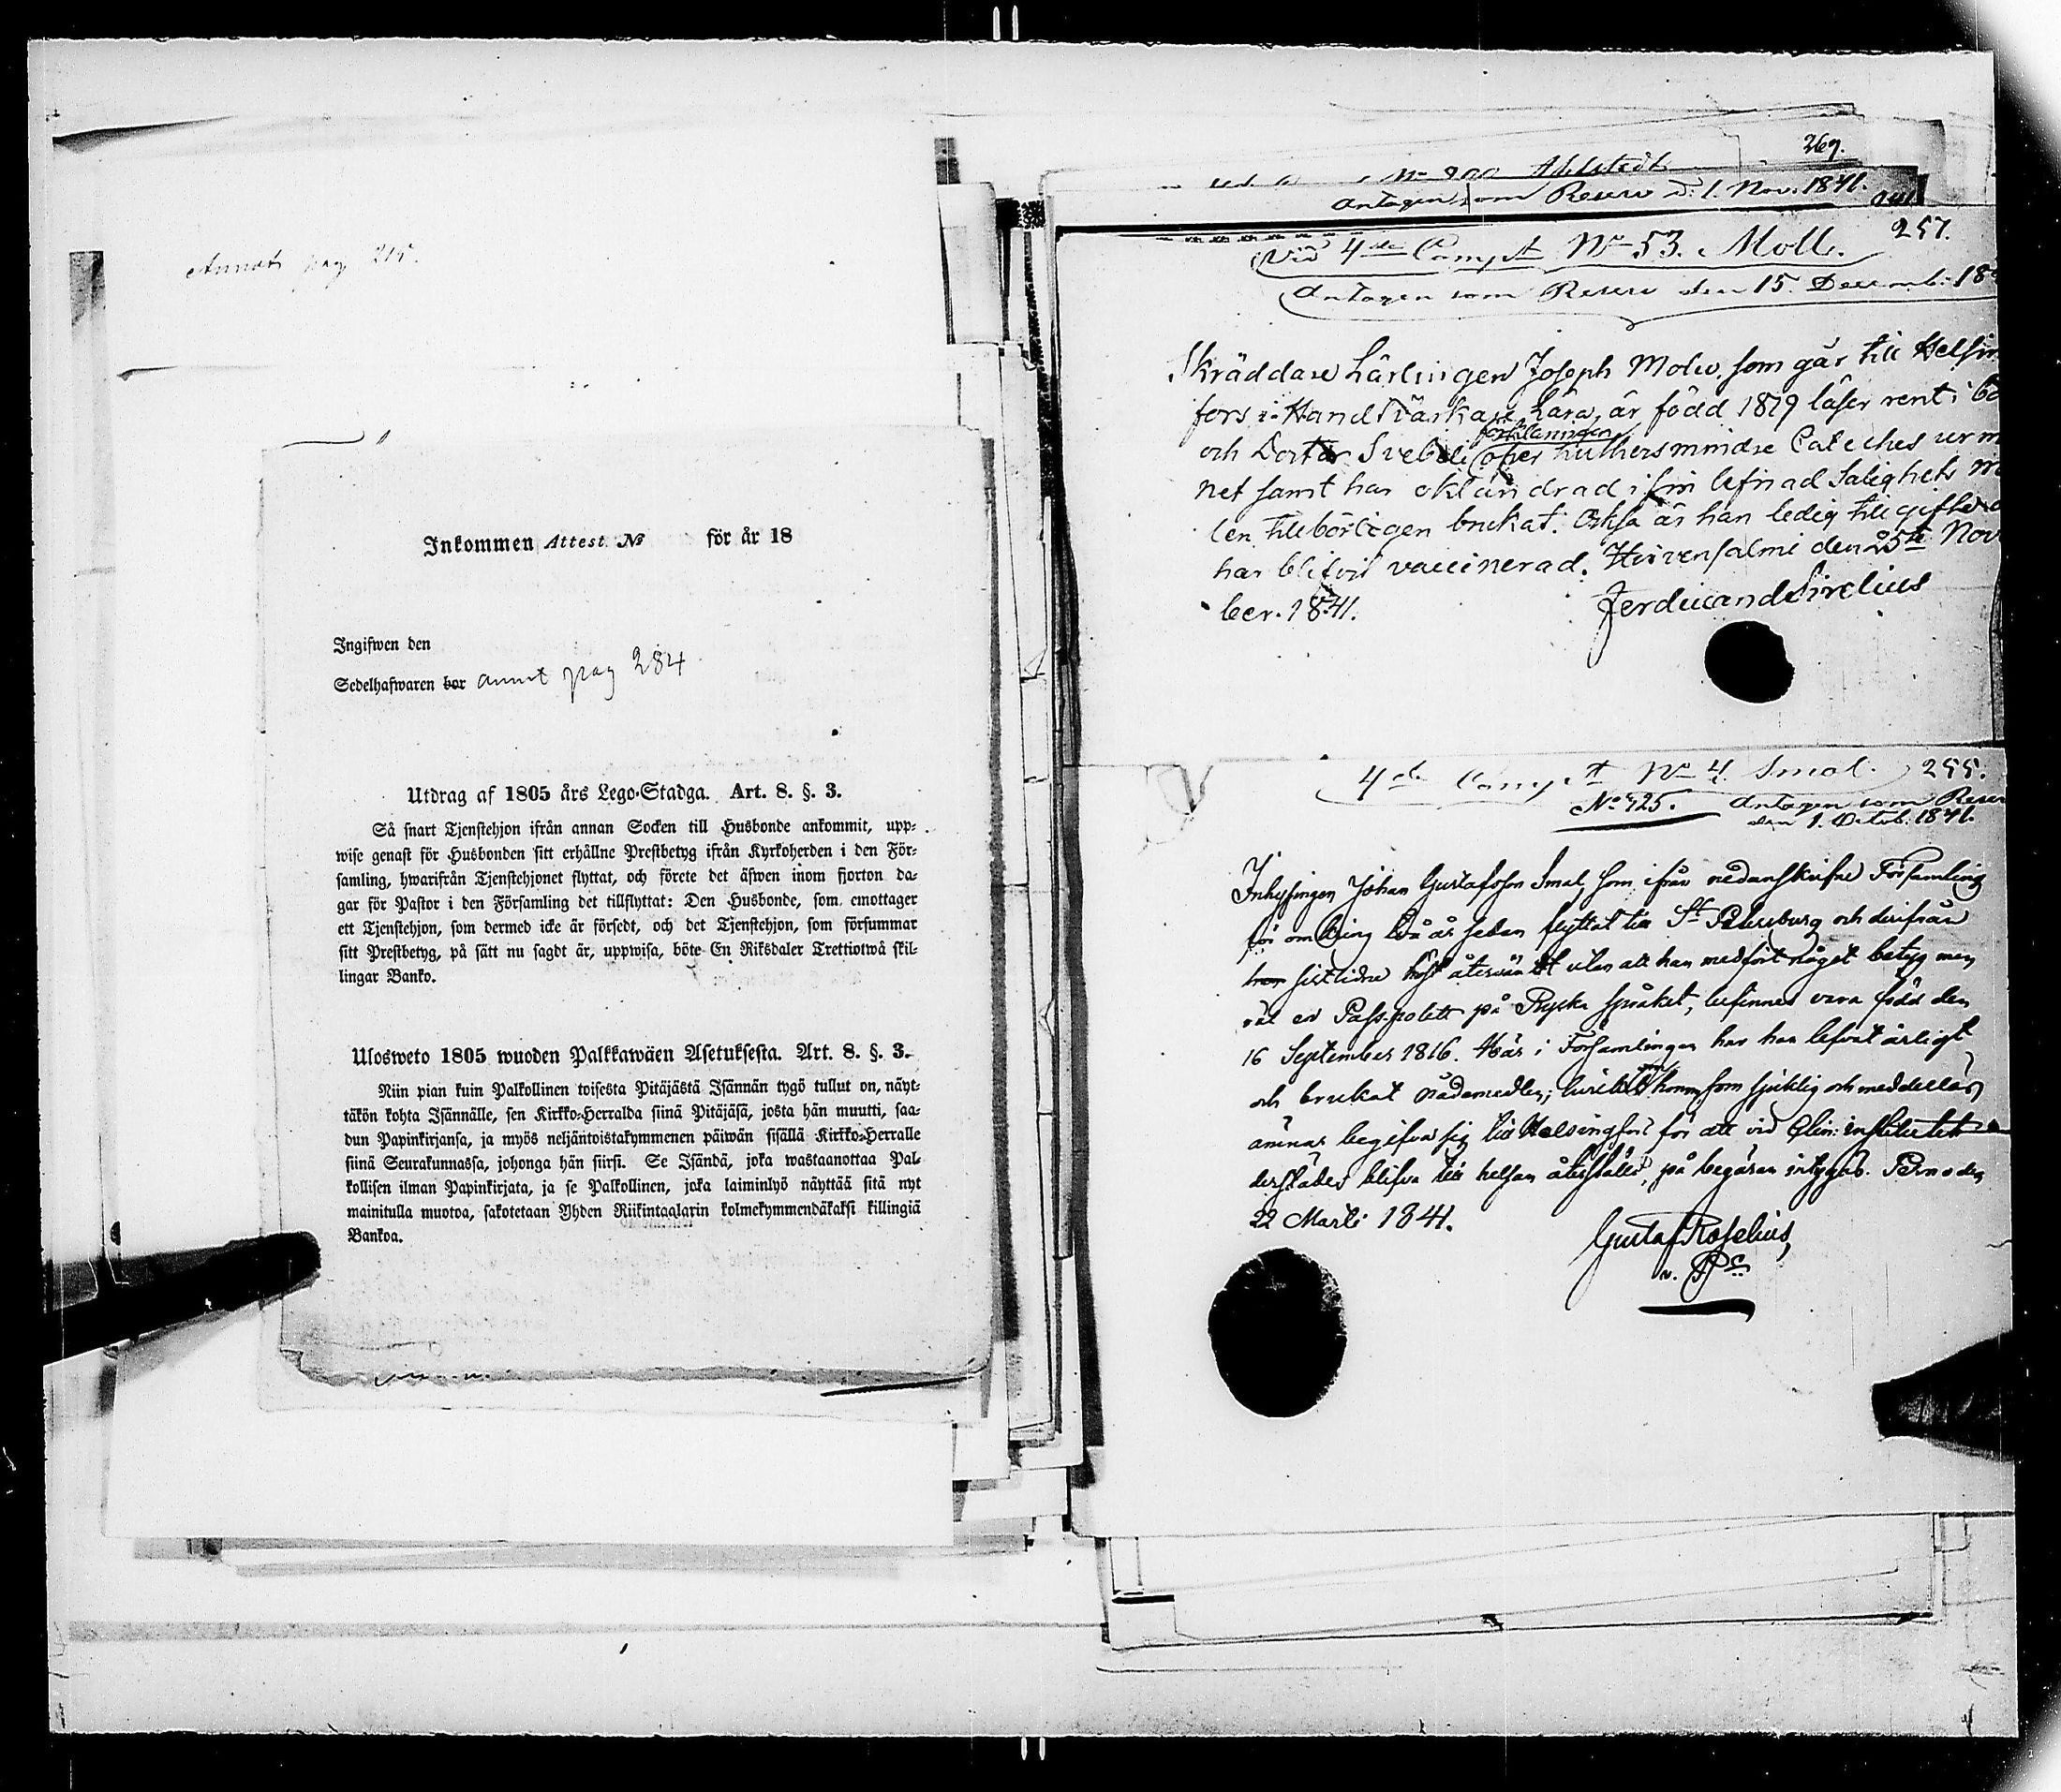 Annot pag 215.
Inkommen Attest No för år 18
Ingifwen den
Sedelhafwaren bor annot pag 284
Utdrag af 1805 års Lego-Stadga. Art. 8. §. 3.
Så snart Tjenstehjon ifrån annan Socken till Husbonde ankommit, upp-
wise genast för Husbonden sitt erhållne Prestbetyg ifrån Kyrkoherden i den För-
samling, hwarifrån Tjenstehjonet flyttat, och förete det äfwen inom fjorton da-
gar för Pastor i den Församling det tillflyttat: Den Husbonde, som emottager
ett Tjenstehjon, som dermed icke är försedt, och det Tjenstehjon, som försummar
sitt Prestbetyg, på sätt nu sagdt är, uppwisa, böte En Riksdaler Trettiotwå skil-
lingar Banko.
Ulosweto 1805 wuoden Palkkawäen Asetuksesta. Art. 8. §. 3.
Niin pian kuin Palkollinen toisesta Pitäjästä Isännän tygö tullut on, näyt-
täkön kohta Isännälle, sen Kirkko-Herralda siinä Pitäjäsä, josta hän muutti, saa-
dun Papinkirjansa, ja myös neljäntoistakymmenen päiwän sisällä Kirkko-Herralle
siinä Seurakunnassa, johonga hän siirsi. Se Isändä, joka wastaanottaa Pal-
kollisen ilman Papinkirjata, ja se Palkollinen, joka laiminlyö näyttää sitä nyt
mainitulla muotoa, sakotetaan Yhden Riikintaalarin kolmekymmendäkaksi killingiä
Bankoa.
269.
No 200 Ahlstedt
Antagen som Reserv d: 1. Nov: 1841.
257.
Vid 4de Comp:t No 53. Moll.
Antagen som Reserv den 15. Decemb: 18
Skräddare Lärlingen Joseph Molu, som går till Helsin
fors i Handtvärkare Lära, är född 1819 läser rent i bo
och Doctor Svebeli förklaringen öfver Luthers mindre Cateches ur m
net samt har oklandrad i sin lefnad Salighets me
len tillbörligen brukat. Också är han ledig till gifte o
har blifvit vaccinerad. Hirvensalmi den 25te Nov
ber. 1841.
Ferdinand Sirelius
4de Comp:t No 4. Smal. 255.
No 425. Antagen som Reser
den 1. Octob: 1841.
Inhysingen Johan Gustafsson Smal, som ifrån nedanskrifne Församling
för omkring två år sedan flyttat till St Petersburg och derifrån
har sistlidne höst återvändt utan att han medfört något betyg men
väl en Pass-polett på Ryska språket, befinnes vara född den
16 September 1816. Här i Församlingen har han lefvat ärligt
och brukat nådemedlen; hvilket honom som sjuklig och medellös
ämnar begifva sig till Helsingfors för att vid Clin: institutet
derstädes blifva till helsan återställd, på begäran intygas. Perno den
22 Martii 1841.
Gustaf Roselius,
v. P:r